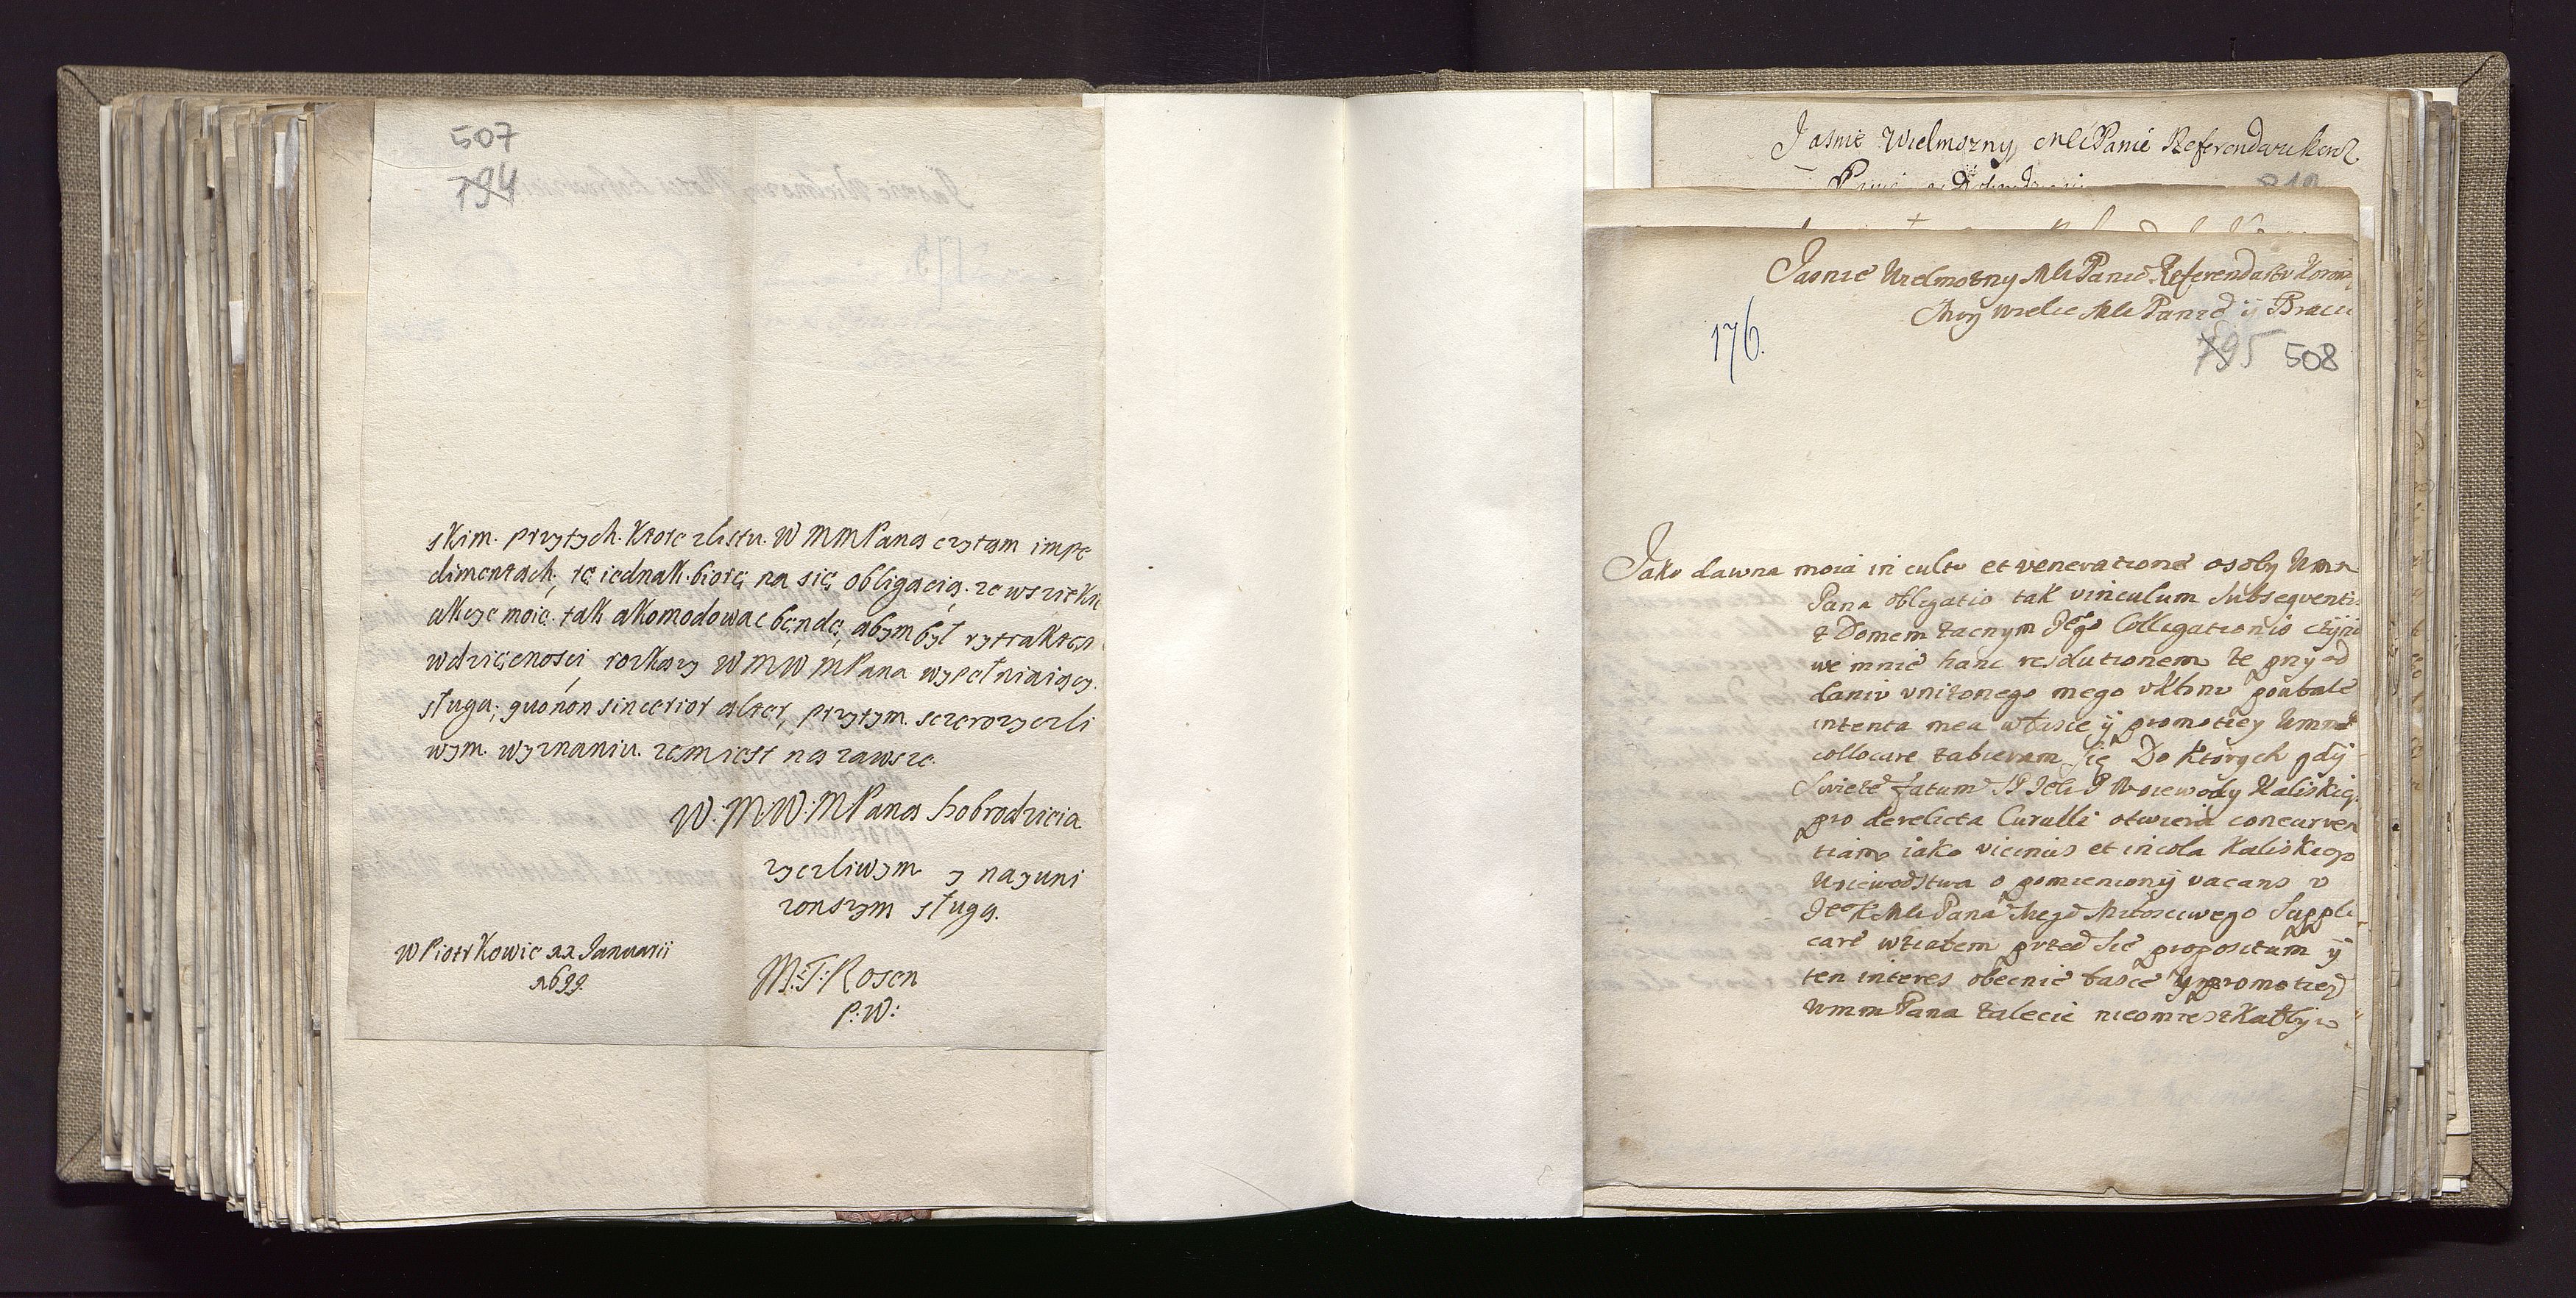 507
794
skim. przytych. ktore zlistu. W M M Pana czytam impe
dimentach, tę iednak. biorę na się obligacią. ze wszelkie
akcye moie. tak akomodowac będę, abym był
wdzięcnosci, rozkazy W M W M Pana wypełniaiący.
sługa, quo non sincerior alter, przytym. szczerozyczli
wym. wyznaniu. zem iest na zawsze.
W: M: W: M Pana Dobrodzieia
zyczliwym y nayuni
zonszym sługą.
W Piotrkowie 22 Januarii
1699.
M: T: Rosen
P: W:
Jasnie Wielmozny Mci Panie Referendarzu Kor
Jasnie Wielmozny Mci Panie Referendarzu Koron
Moy wielce Mci Panie ÿ Bracie
176.
795 508
Jako dawna moia in cultu et veneratione osoby Wmm
Pana obligatio tak vinculum subsequentis
z Domem zacnym Jego Colligationis czÿni
we mnie hanc resolutionem ze przy od
daniu unizonego mego ukłonu poufale
intenta mea w łasce ÿ promotiey Wmm
collocare zabieram się Do ktorych gdÿ
Swieze fatum S P Jmci P Woiewody Kaliskieg
pro derelicta Curulli otwiera concurren
tiam iako vicinus et incola Kaliskiego
Woiewodstwa o pomienionÿ vacans u
Je[o] K Mci Pana Mego Miłosciwego Suppli
care wziąłem przed sie propositum ÿ
ten interes obecnie łasce ÿ promotiey
Wmm Pana zalecic nieomieszkałbÿm